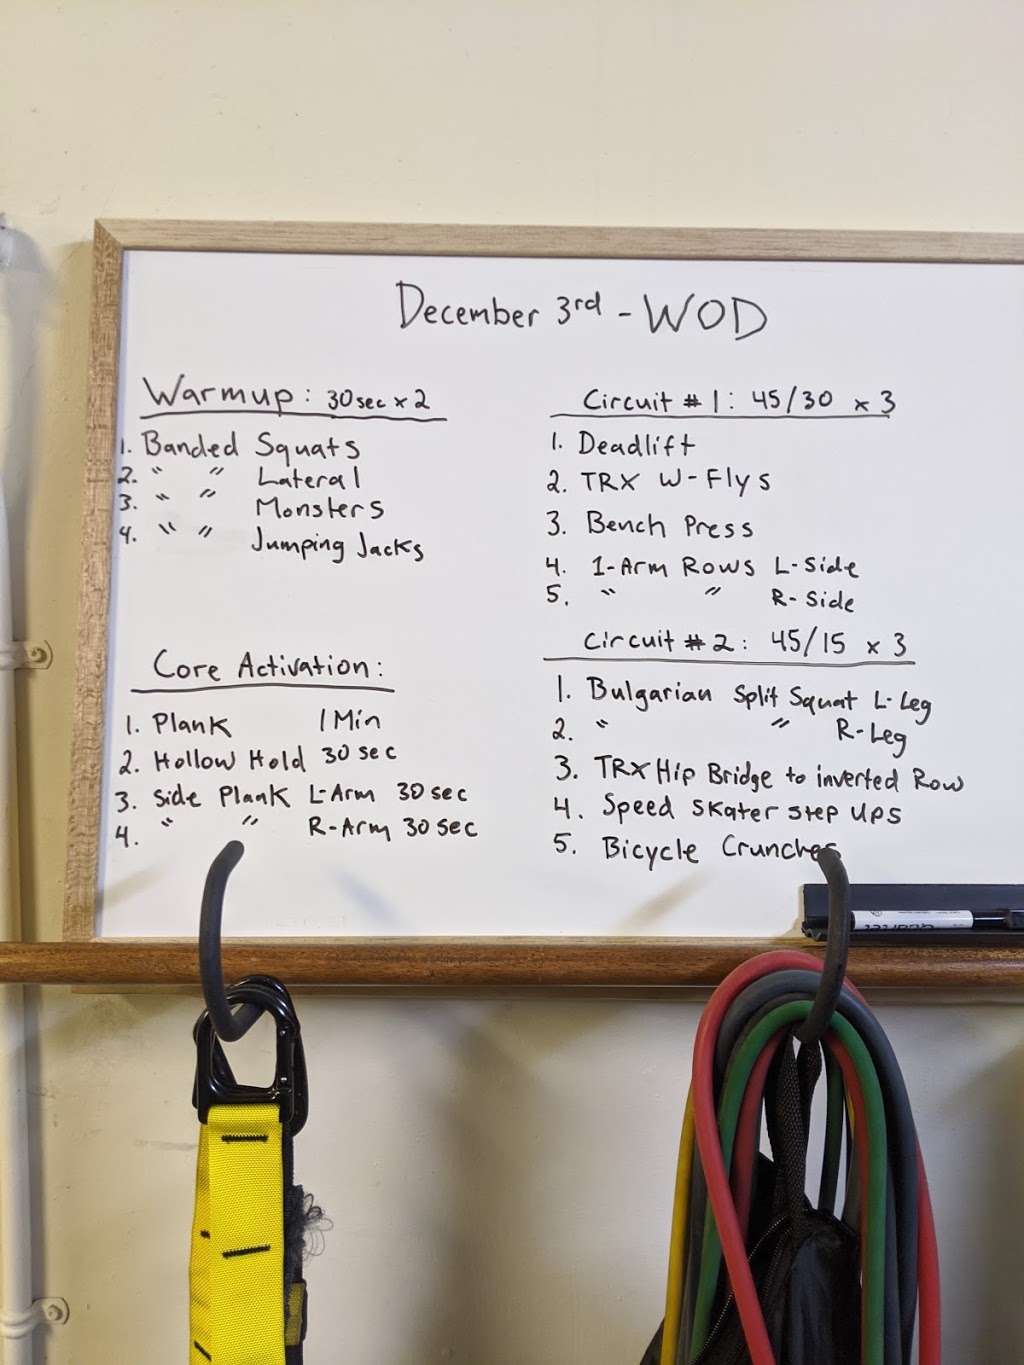 December 3rd - WOD
Warmup: 30sec x 2
1. Banded Squats
2. " " Lateral
3. " " Monsters
4. " " Jumping Jacks
Core Activation:
1. Plank 1 Min
2. Hollow Hold 30 sec
3. Side Plank L-Arm 30 sec
4. " " R-Arm 30 sec
Circuit #1: 45/30 x 3
1. Deadlift
2. TRX W-Flys
3. Bench Press
4. 1-Arm Rows L-Side
5. " " R-Side
Circuit #2: 45/15 x 3
1. Bulgarian Split Squat L-Leg
2. " " R-Leg
3. TRX Hip Bridge to inverted Row
4. Speed Skater Step Ups
5. Bicycle Crunches